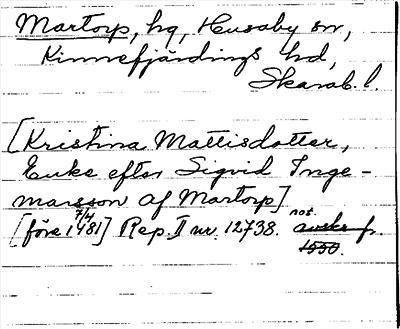 Martorp, hg, Husaby sn,
Kinnefjärdings hd,
Skarab. l.
[Kristina Mattisdotter,
Enke efter Sigvid Inge-
marsson af Martorp]
[före 7/4 1481] Rep. II nr. 12738. not.
1550.